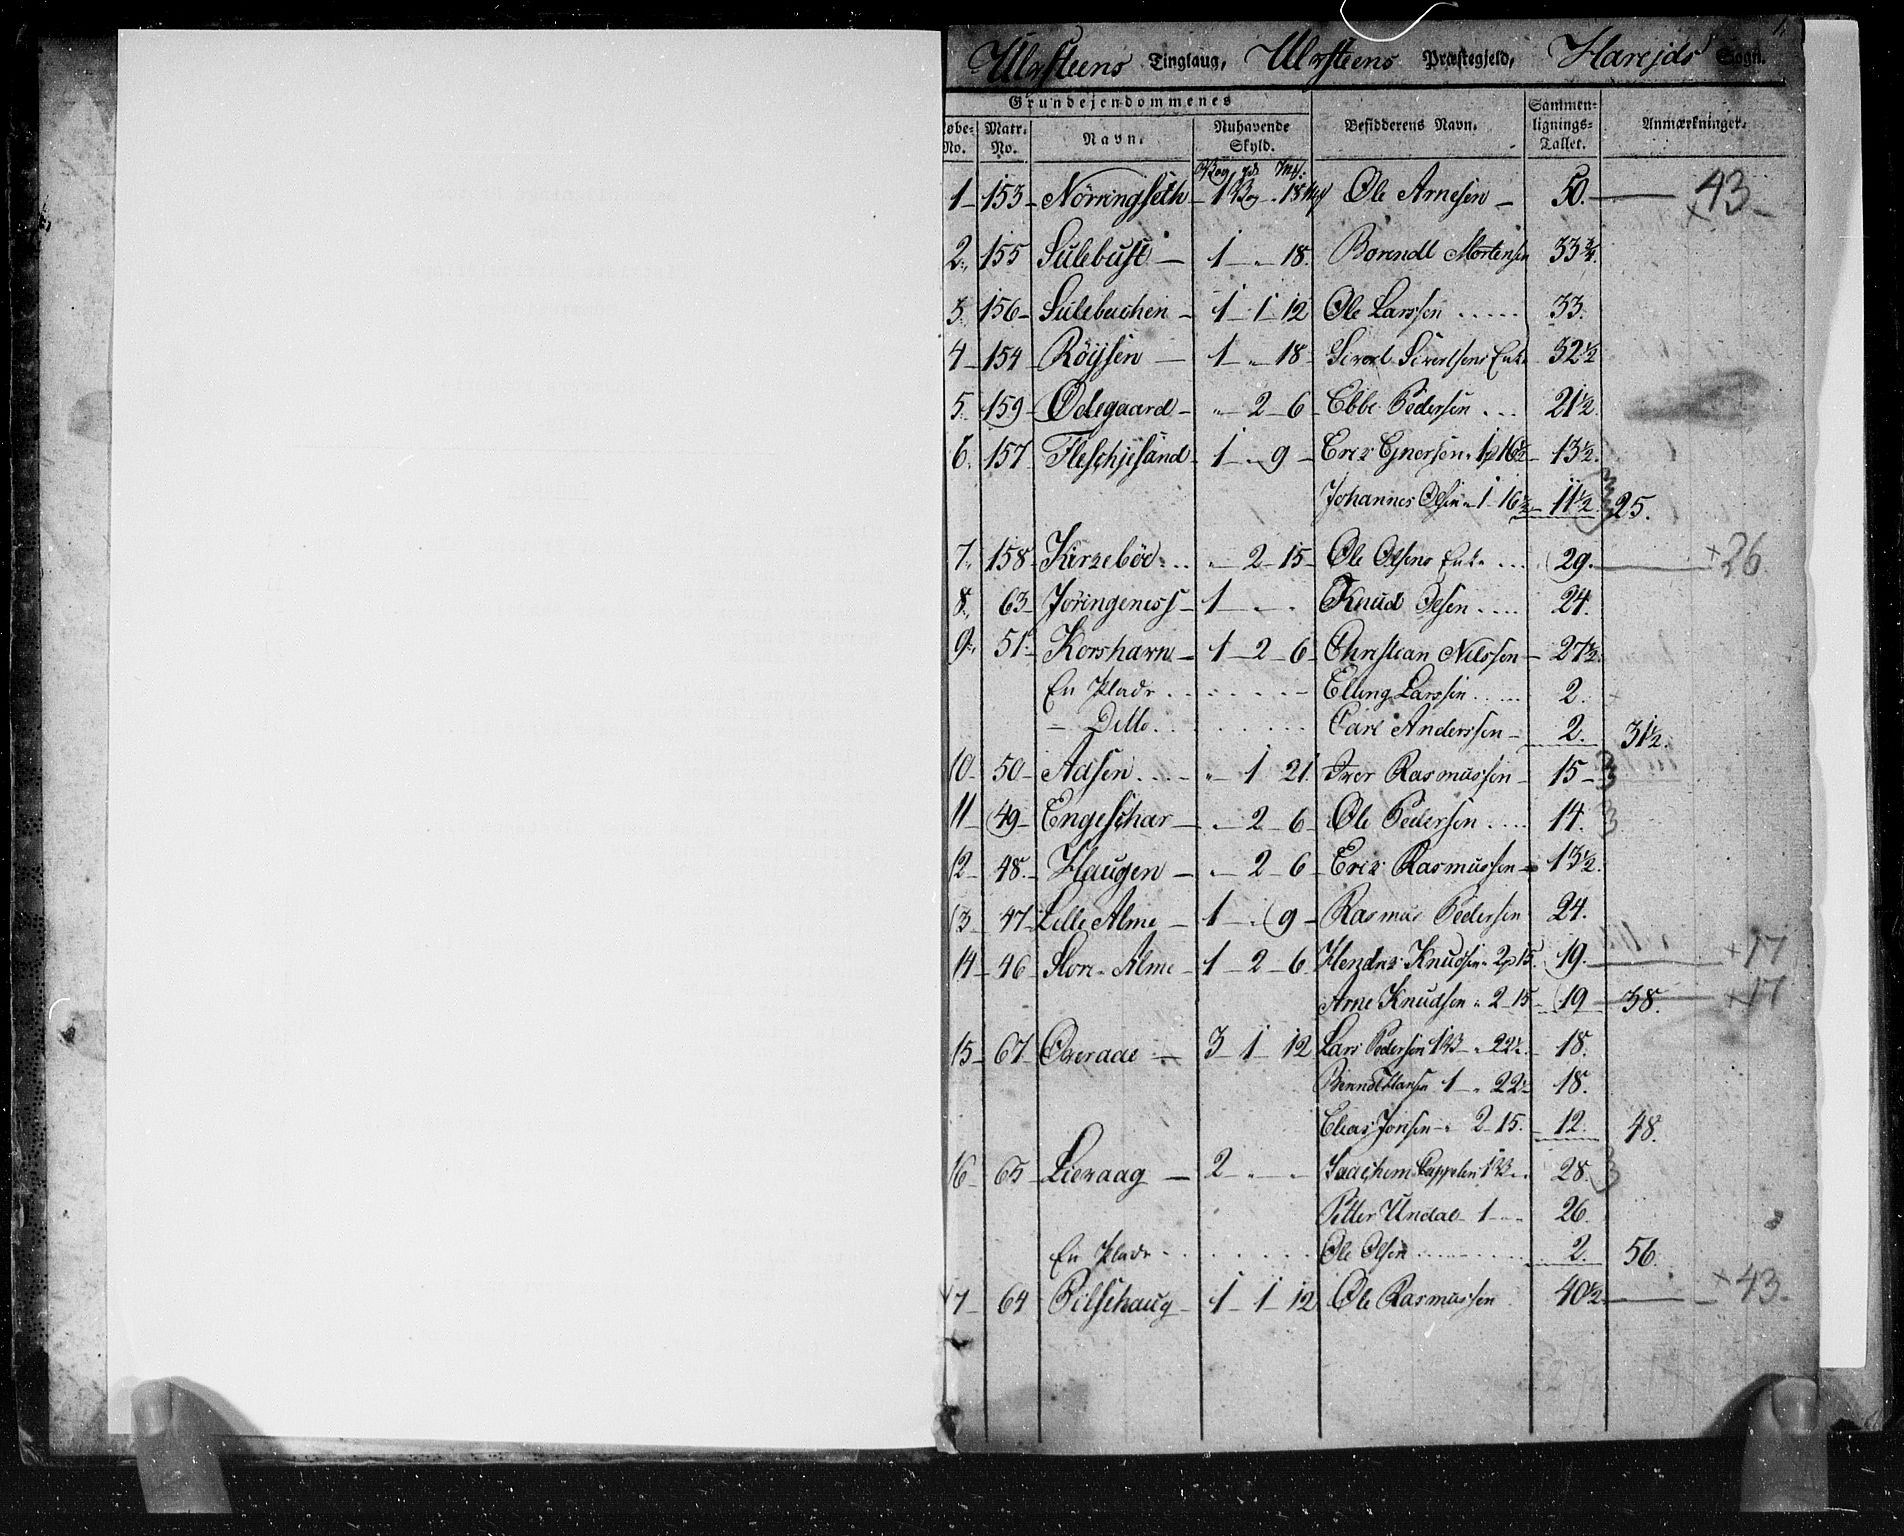 Ulfsteens Tinglaug, Ulfsteens Præstegjeld, Harejds Sogn.
Grundejendommenes
Løbe-No. Matr. No. Navn. Nuhavende Skyld. Besidderens Navn. Sammenlignings-Tallet. Anmærkninger.
1 153 Nörringseth 1 18 Ole Arnesen 50. 43
2 155 Sulebust 1 " 18. Berendt Mortensen 33 3/4.
3. 156 Sulebachen 1 1 12 Ole Larssen 33.
4 154 Röysen 1 " 18 Sivert Sivertsens Enke 32 1/2
5. 159 Ödegaard " 2 6 Ebbe Pedersen 21 1/2.
6. 157 Fleschjesand 1 " 9 13 1/2.
Johannes Olsen " 1 16 1/2 11 1/2 25.
7. 158 Kirkebøe " 2 15 Ole Olsens Enke 29. +26.
8. 63 Jöringeness 1 " " Knud Olsen 24.
9. 51 Korshavn 1 2 6 Christian Nilssen 27 1/2
En Plads Elling Larssen 2.
Ditto Carl Anderssen 2. 31 1/2.
10 50 Aasen " 1 21. Iver Rasmussen 15
11 49 Engeschar " 2 6 Ole Pedersen 14.
12 48. Haugen " 2 6 Erik Rasmussen 13 1/2.
13 47 Lille Alme 1 " 9 Rasmus Pedersen 24.
14 46 Store Alme 1 2 6 Hendrik Knudsen " 2 15. 19. +17
Arne Knudsen " 2 15 19 38. +17
15 67 Overaae 3 1 12 Lars Pedersen 1 " 22 1/2 18.
Berendt Hansen 1 " 22 1/2 18.
Elias Jonsen " 2 15. 12. 48.
16 65 Lieraag 2 " " Joachem Cappelen 28.
Petter Undal 1 " " 26.
En Plads Ole Olsen 2. 56.
17 64 Pilschaug 1 1 12 Ole Rasmussen 40 1/2 +43.